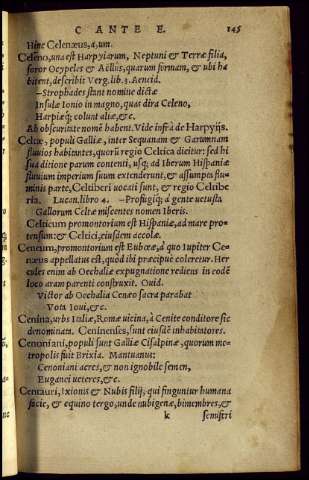 C ANTE E. 145
Hinc Celenæus, a, um.
Celeno, una est Harpyiarum, Neptuni & Terræ filia,
soror Ocypetes & Aëllûs, quarum formam, & ubi ha
bitent, describit Verg. lib. 3. Aeneid.
—Strophades stant nomine dictæ
Insulæ Ionio in magno, quas dira Celeno,
Harpiæq; colunt aliæ, &c.
Ab obscuritate nomē habent. Vide infrà de Harpyijs.
Celtæ, populi Galliæ, inter Sequanam & Garumnam
fluvios habitantes, quorū regio Celtica dicitur: sed hi
sua ditione parum contenti, usq; ad Iberum Hispaniæ
fluvium imperium suum extenderunt, & assumpto flu
minis parte, Celtiberi uocati sunt, & regio Celtibe
ria. Lucan. libro 4. —Profugiq; à gente uetusta
Gallorum Celtæ miscentes nomen Iberis.
Celticum promontorium est Hispaniæ, ad mare pro-
tensum: & Celtici, eiusdem accolæ.
Cenæum, promontorium est Eubœæ, à quo Iupiter Ce-
næus appellatus est, quòd ibi præcipue coleretur. Her
cules enim ab Oechaliæ expugnatione rediens in eodē
loco aram parenti construxit. Ouid.
Victor ab Oechalia Cenæo sacra parabat
Vota Ioui, &c.
Cenina, urbs Italiæ, Romæ uicina, à Cenite conditore sic
denominata. Ceninenses, sunt eiusdē inhabitatores.
Cenomani, populi sunt Galliæ Cisalpinæ, quorum me-
tropolis fuit Brixia. Mantuanus:
Cenomani acres, & non ignobile semen,
Euganei ueteres, &c.
Centauri, Ixionis & Nubis filij, qui finguntur humana
facie, & equino tergo, unde nubigenæ, bimembres, &
k semiferi